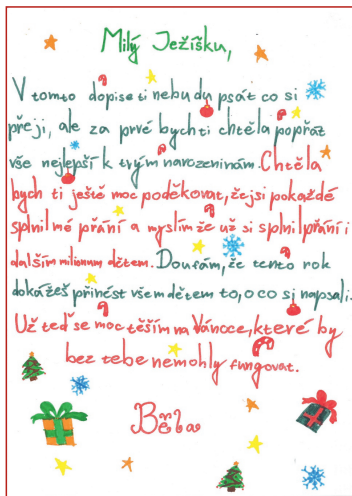 Milý Ježíšku,
V tomto dopise ti nebudu psát co si
přeji, ale za prvé bych ti chtěla popřát
vše nejlepší k tvým narozeninám. Chtěla
bych ti ještě moc poděkovat, že jsi pokaždé
splnil mé přání a myslím že už si splnil přání i
dalším milionům dětem. Doufám, že tento rok
dokážeš přinést všem dětem to, o co si napsali.
Už teď se moc těším na Vánoce, které by
bez tebe nemohly fungovat.
Běla